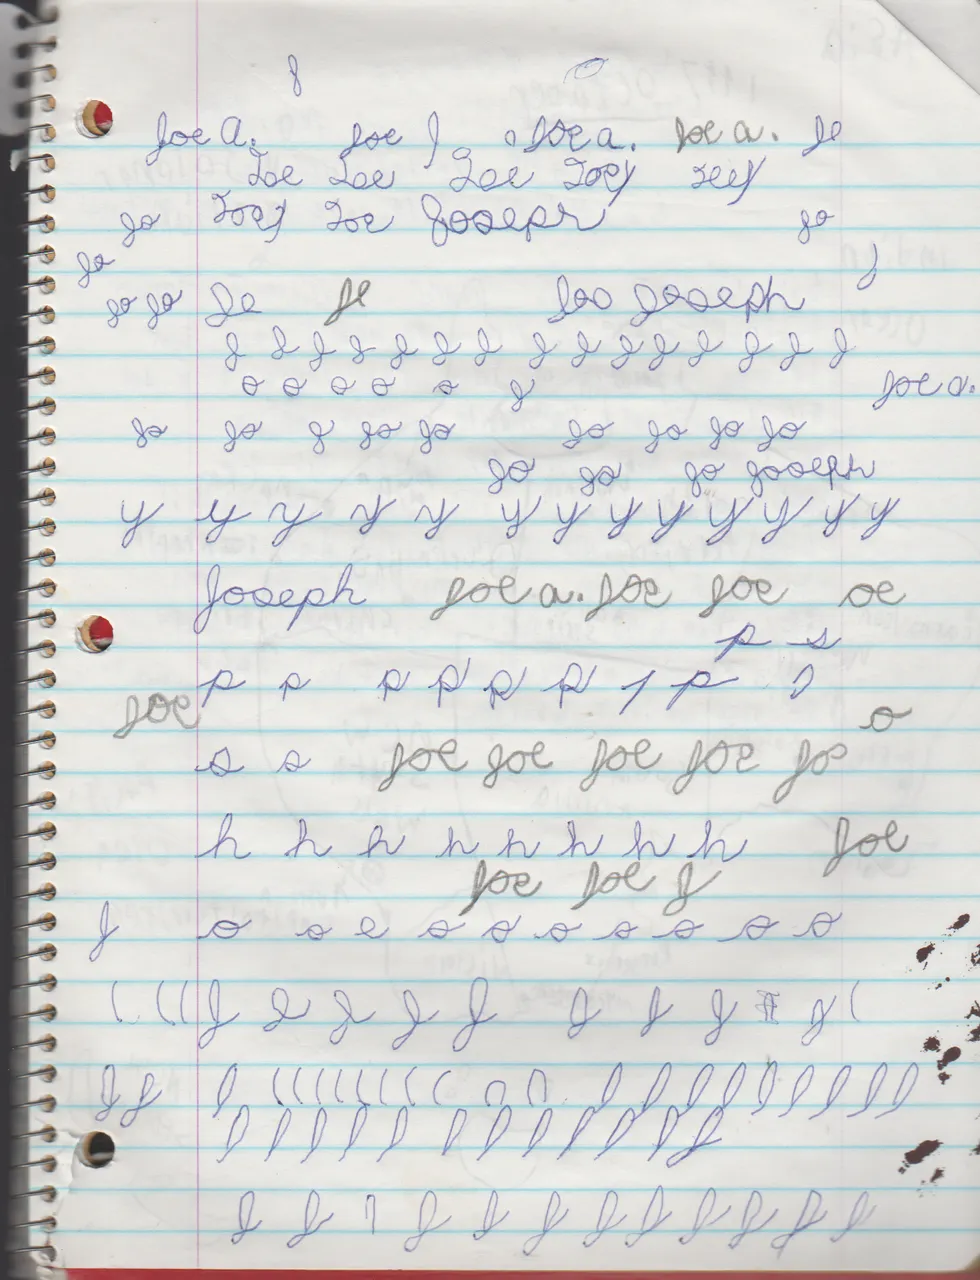 J
Joe a. Joe J o Joe a. Joe a. Je
Joe Joe Joe Joey Joey
Jo Joey Joe Joseph Jo
Jo J
Jo Jo Je Je Joo Joseph
J J J J J J J J J J J J J J J
o o o o o J Joe a.
Jo Jo J Jo Jo Jo Jo Jo Jo
Jo Jo Jo Joseph
y y y y y y y y y y y y y
Joseph Joe a. Joe Joe oe
p s
p p p p p p p p
Joe o
s s Joe Joe Joe Joe Jo
h h h h h h h h Joe
Joe Joe J
J o o o o o o o o o
J J J J J J J J J
J J J
J J J J J J J J J J